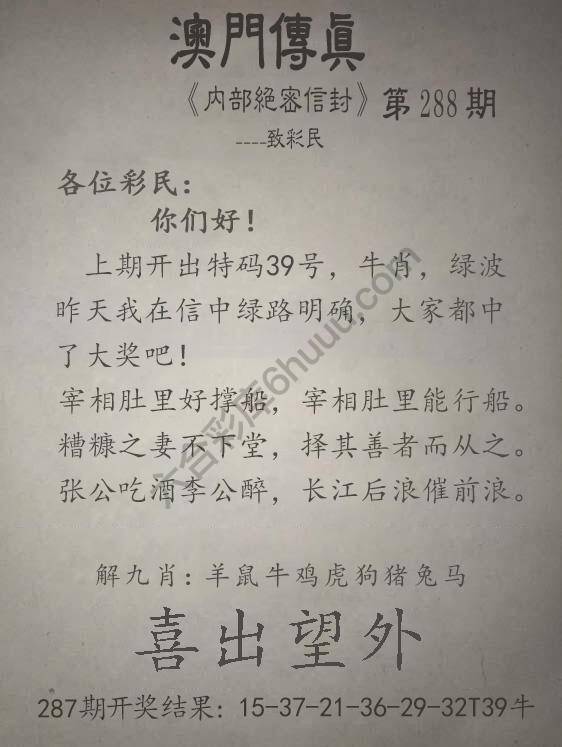 澳門傳眞
《内部絕密信封》第288期
----致彩民
各位彩民：
你们好！
上期开出特码39号，牛肖，绿波
昨天我在信中绿路明确，大家都中
了大奖吧！
宰相肚里好撑船，宰相肚里能行船。
糟糠之妻不下堂，择其善者而从之。
张公吃酒李公醉，长江后浪催前浪。
六合彩库6huuu.com
解九肖：羊鼠牛鸡虎狗猪兔马
喜出望外
287期开奖结果：15-37-21-36-29-32T39牛